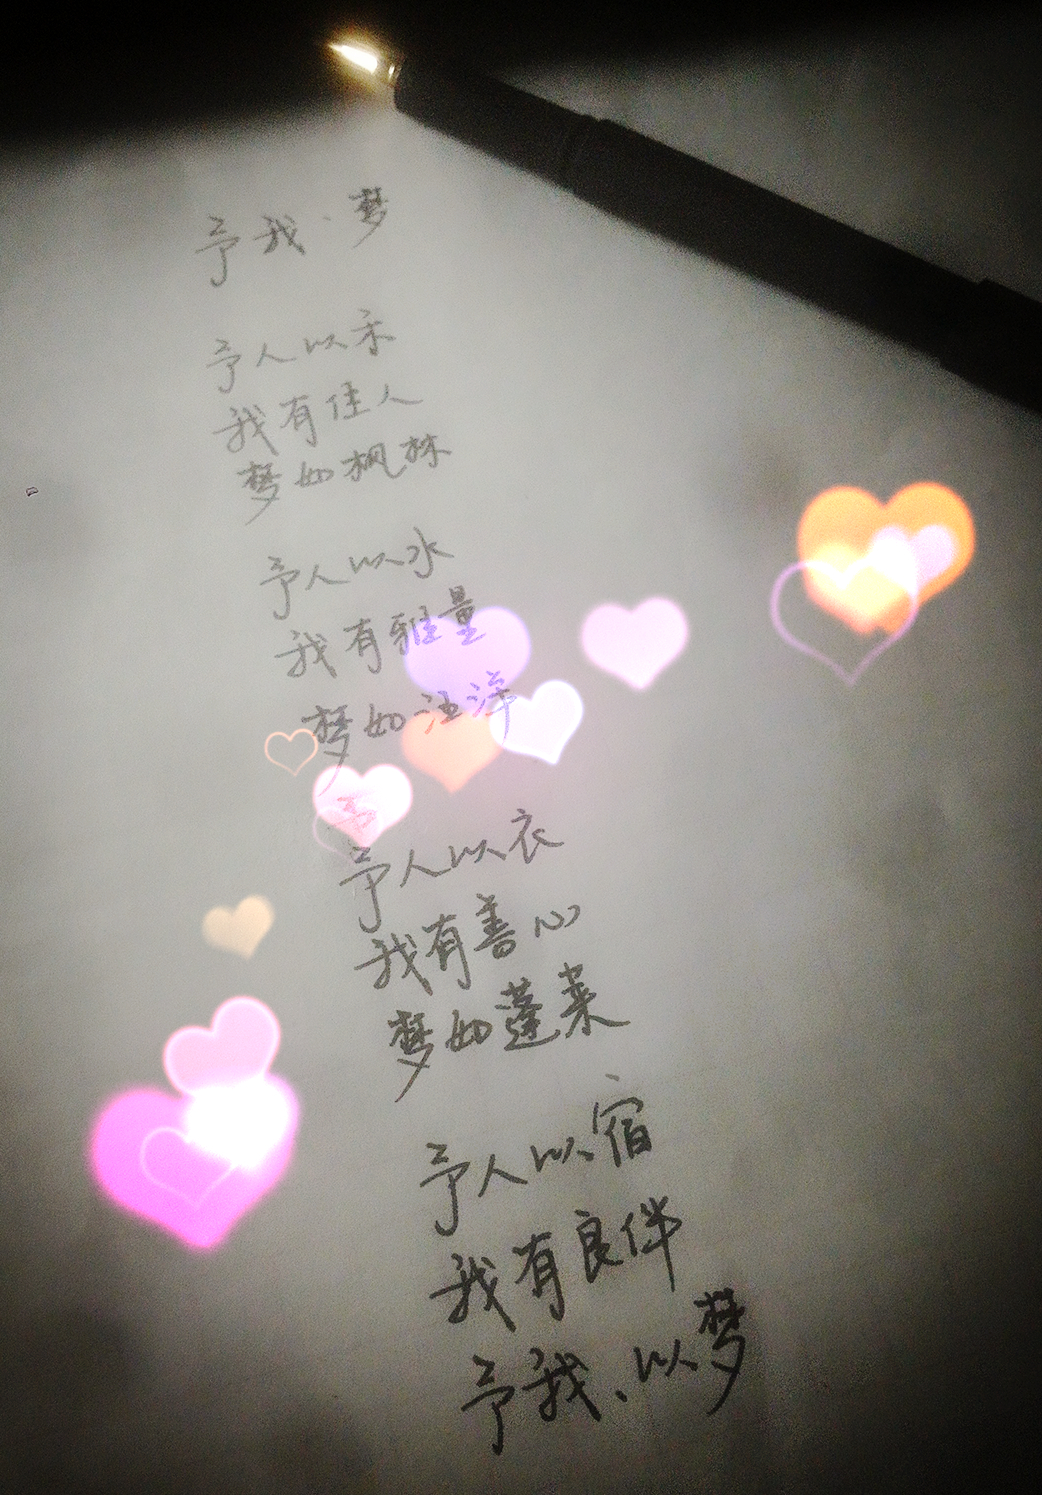 予我·梦
予人以禾
我有佳人
梦如枫林
予人以水
我有雅量
梦如汪洋
予人以衣
我有善心
梦如蓬莱
予人以宿
我有良伴
予我、以梦